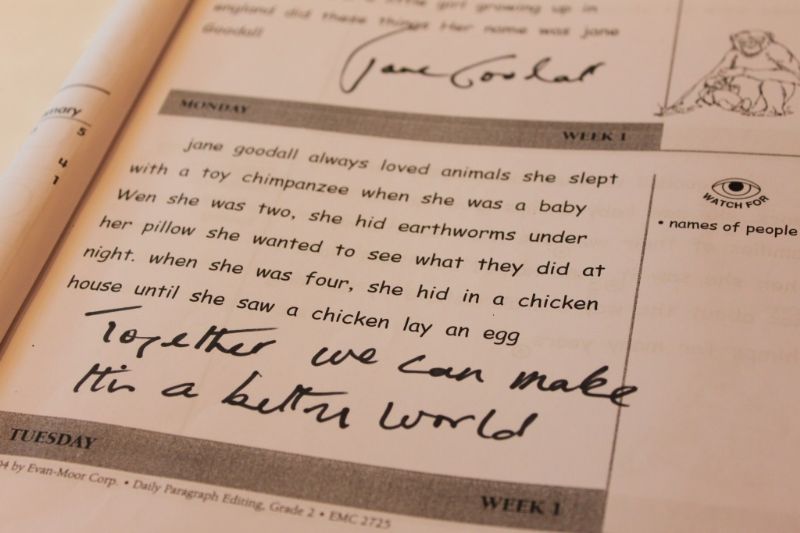 little girl growing up in
england did these things Her name was jane
Goodall
Jane Goodall
MONDAY
WEEK 1
jane goodall always loved animals she slept
with a toy chimpanzee when she was a baby
Wen she was two, she hid earthworms under
her pillow she wanted to see what they did at
night. when she was four, she hid in a chicken
house until she saw a chicken lay an egg
Together we can make
this a better world
WATCH FOR
• names of people
5
4
1
TUESDAY
WEEK 1
by Evan-Moor Corp. • Daily Paragraph Editing, Grade 2 • EMC 2725